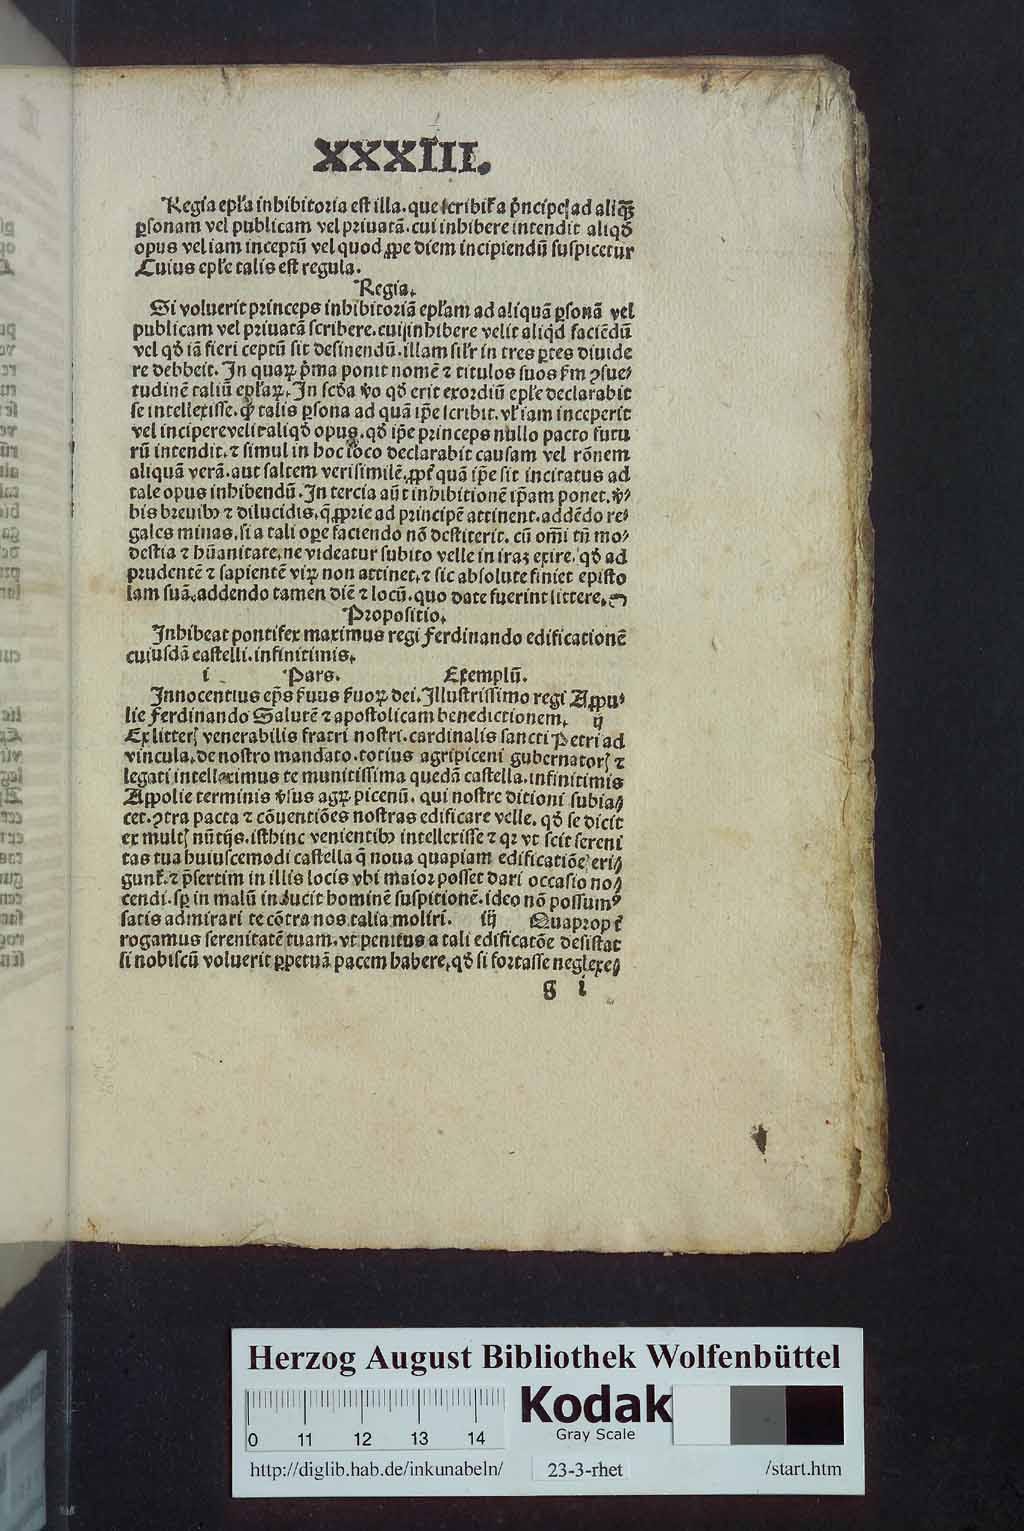 XXXIII.
Regia epl̄a inhibitoria est illa. que scribit̃ a pͥncipeꝭ ad aliqͣꝫ
ꝑsonam vel publicam vel priuatā. cui inhibere intendit aliqđ
opus vel iam inceptū vel quod ꝓpe diem incipiendū suspicetur
Cuius epl̄e talis est regula.
Regia.
Si voluerit princeps inhibitoriā epl̄am ad aliquā ꝑsonā vel
publicam vel priuatā scribere. cui inhibere velit aliqd̛ faciēdū
vel qđ iā fieri ceptū sit desinendū. illam sil̄r in tres ꝑtes diuide
re debbeit. In quaꝝ pͥma ponit nomē ⁊ titulos suos ẜm ꝯsue⸗
tudinē taliū epl̄aꝝ. In scđa v̄o qđ erit exordiū epl̄e declarabit
se intellexisse. qꝙ talis ꝑsona ad quā ip̄e scribit. vl̄ iam inceperit
vel incipere velit aliqđ opus. qđ ip̄e princeps nullo pacto futu
rū intendit. ⁊ simul in hoc loco declarabit causam vel rōnem
aliquā verā. aut saltem verisimilē. ꝓpt̃ quā ip̄e sit incitatus ad
tale opus inhibendū. In tercia aūt inhibitionē ip̄am ponet. v̛⸗
bis breuibꝰ ⁊ dilucidis. q̄ ꝓprie ad principē attinent. addēdo re⸗
gales minas. si a tali oꝑe faciendo nō destiterit. cū om̄i tn̄ mo⸗
destia ⁊ hūanitate. ne videatur subito velle in iraꝫ exire. qđ ad
prudentē ⁊ sapientē viꝝ non attinet. ⁊ sic absolute finiet episto
lam suā. addendo tamen diē ⁊ locū. quo date fuerint littere.
Propositio.
Inhibeat pontifex maximus regi ferdinando edificationē
cuiusdā castelli. infinitimis.
i Pars. Exemplū.
Innocentius ep̄s ẜuus ẜuoꝝ dei. Illustrissimo regi Appu⸗
lie ferdinando Salutē ⁊ apostolicam benedictionem. ij
Ex litterꝭ venerabilis fratri nostri. cardinalis sancti Petri ad
vincula. de nostro mandato. totius agripiceni gubernatorꝭ ⁊
legati intelleximus te munitissima quedā castella. infinitimis
Appolie terminis v̛sus agꝝ picenū. qui nostre ditioni subia⸗
cet. ꝯtra pacta ⁊ cōuentiōes nostras edificare velle. qđ se dicit
ex multꝭ nūtijs. isthinc venientibꝰ intellexisse ⁊ qꝛ vt scit sereni
tas tua huiuscemodi castella q̄ noua quapiam edificatiōe eri⸗
gunt̃. ⁊ p̄sertim in illis locis vbi maior posset dari occasio no⸗
cendi. sꝑ in malū inducit hominē suspitionē. ideo nō possumꝰ
satis admirari te cōtra nos talia moliri. iij Quapropt̃
rogamus serenitatē tuam. vt penitus a tali edificatōe desistat
si nobiscū voluerit ꝑpetuā pacem habere. qđ si fortasse neglexe⸗
g i
Herzog August Bibliothek Wolfenbüttel
0 11 12 13 14
Kodak
Gray Scale
http://diglib.hab.de/inkunabeln/ 23-3-rhet /start.htm